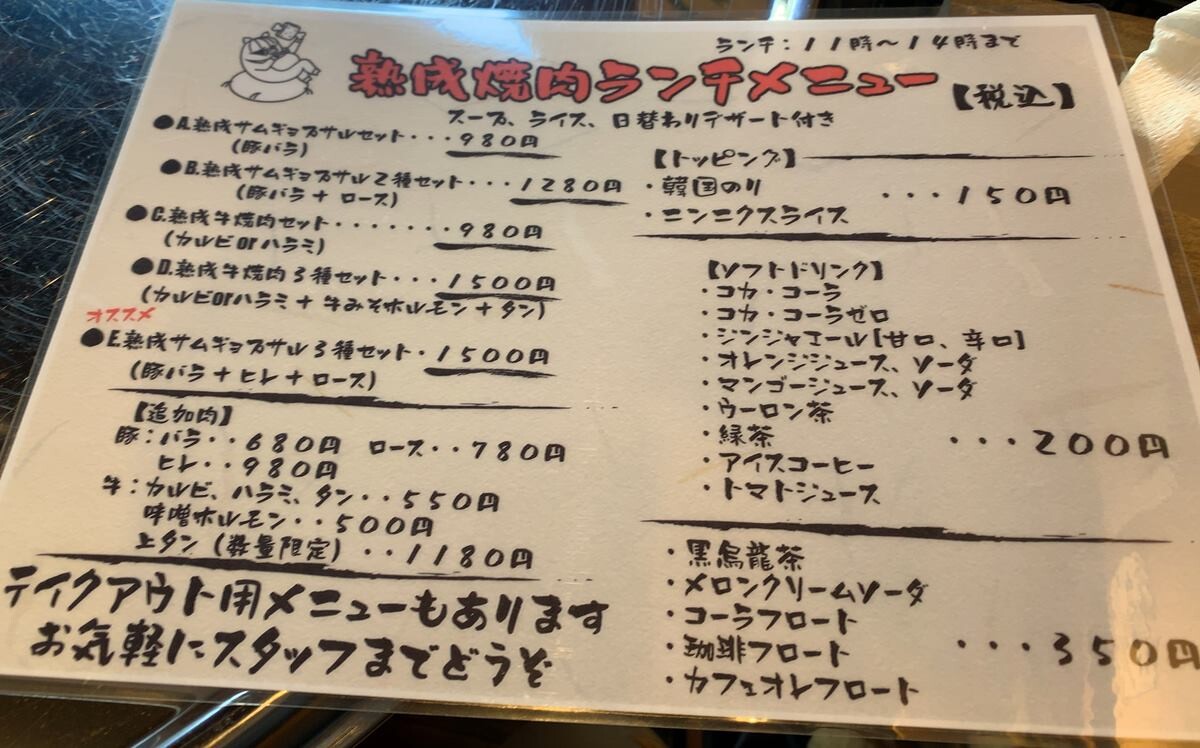 ランチ：11時〜14時まで
熟成焼肉ランチメニュー【税込】
スープ、ライス、日替わりデザート付き
●A.熟成サムギョプサルセット・・・980円
(豚バラ)
●B.熟成サムギョプサル2種セット・・・1280円
(豚バラ + ロース)
●C.熟成牛焼肉セット・・・・・・・980円
(カルビorハラミ)
●D.熟成牛焼肉3種セット・・・1500円
(カルビorハラミ + 牛みそホルモン + タン)
オススメ
●E.熟成サムギョプサル3種セット・1500円
(豚バラ + ヒレ + ロース)
【追加肉】
豚：バラ・・680円 ロース・・780円
ヒレ・・980円
牛：カルビ、ハラミ、タン・・550円
味噌ホルモン・・500円
上タン（数量限定）・・1180円
テイクアウト用メニューもあります
お気軽にスタッフまでどうぞ
【トッピング】
・韓国のり ・・・150円
・ニンニクスライス
【ソフトドリンク】
・コカ・コーラ
・コカ・コーラゼロ
・ジンジャエール[甘口、辛口]
・オレンジジュース、ソーダ
・マンゴージュース、ソーダ
・ウーロン茶
・緑茶 ・・・200円
・アイスコーヒー
・トマトジュース
・黒烏龍茶
・メロンクリームソーダ
・コーラフロート
・珈琲フロート ・・・350円
・カフェオレフロート